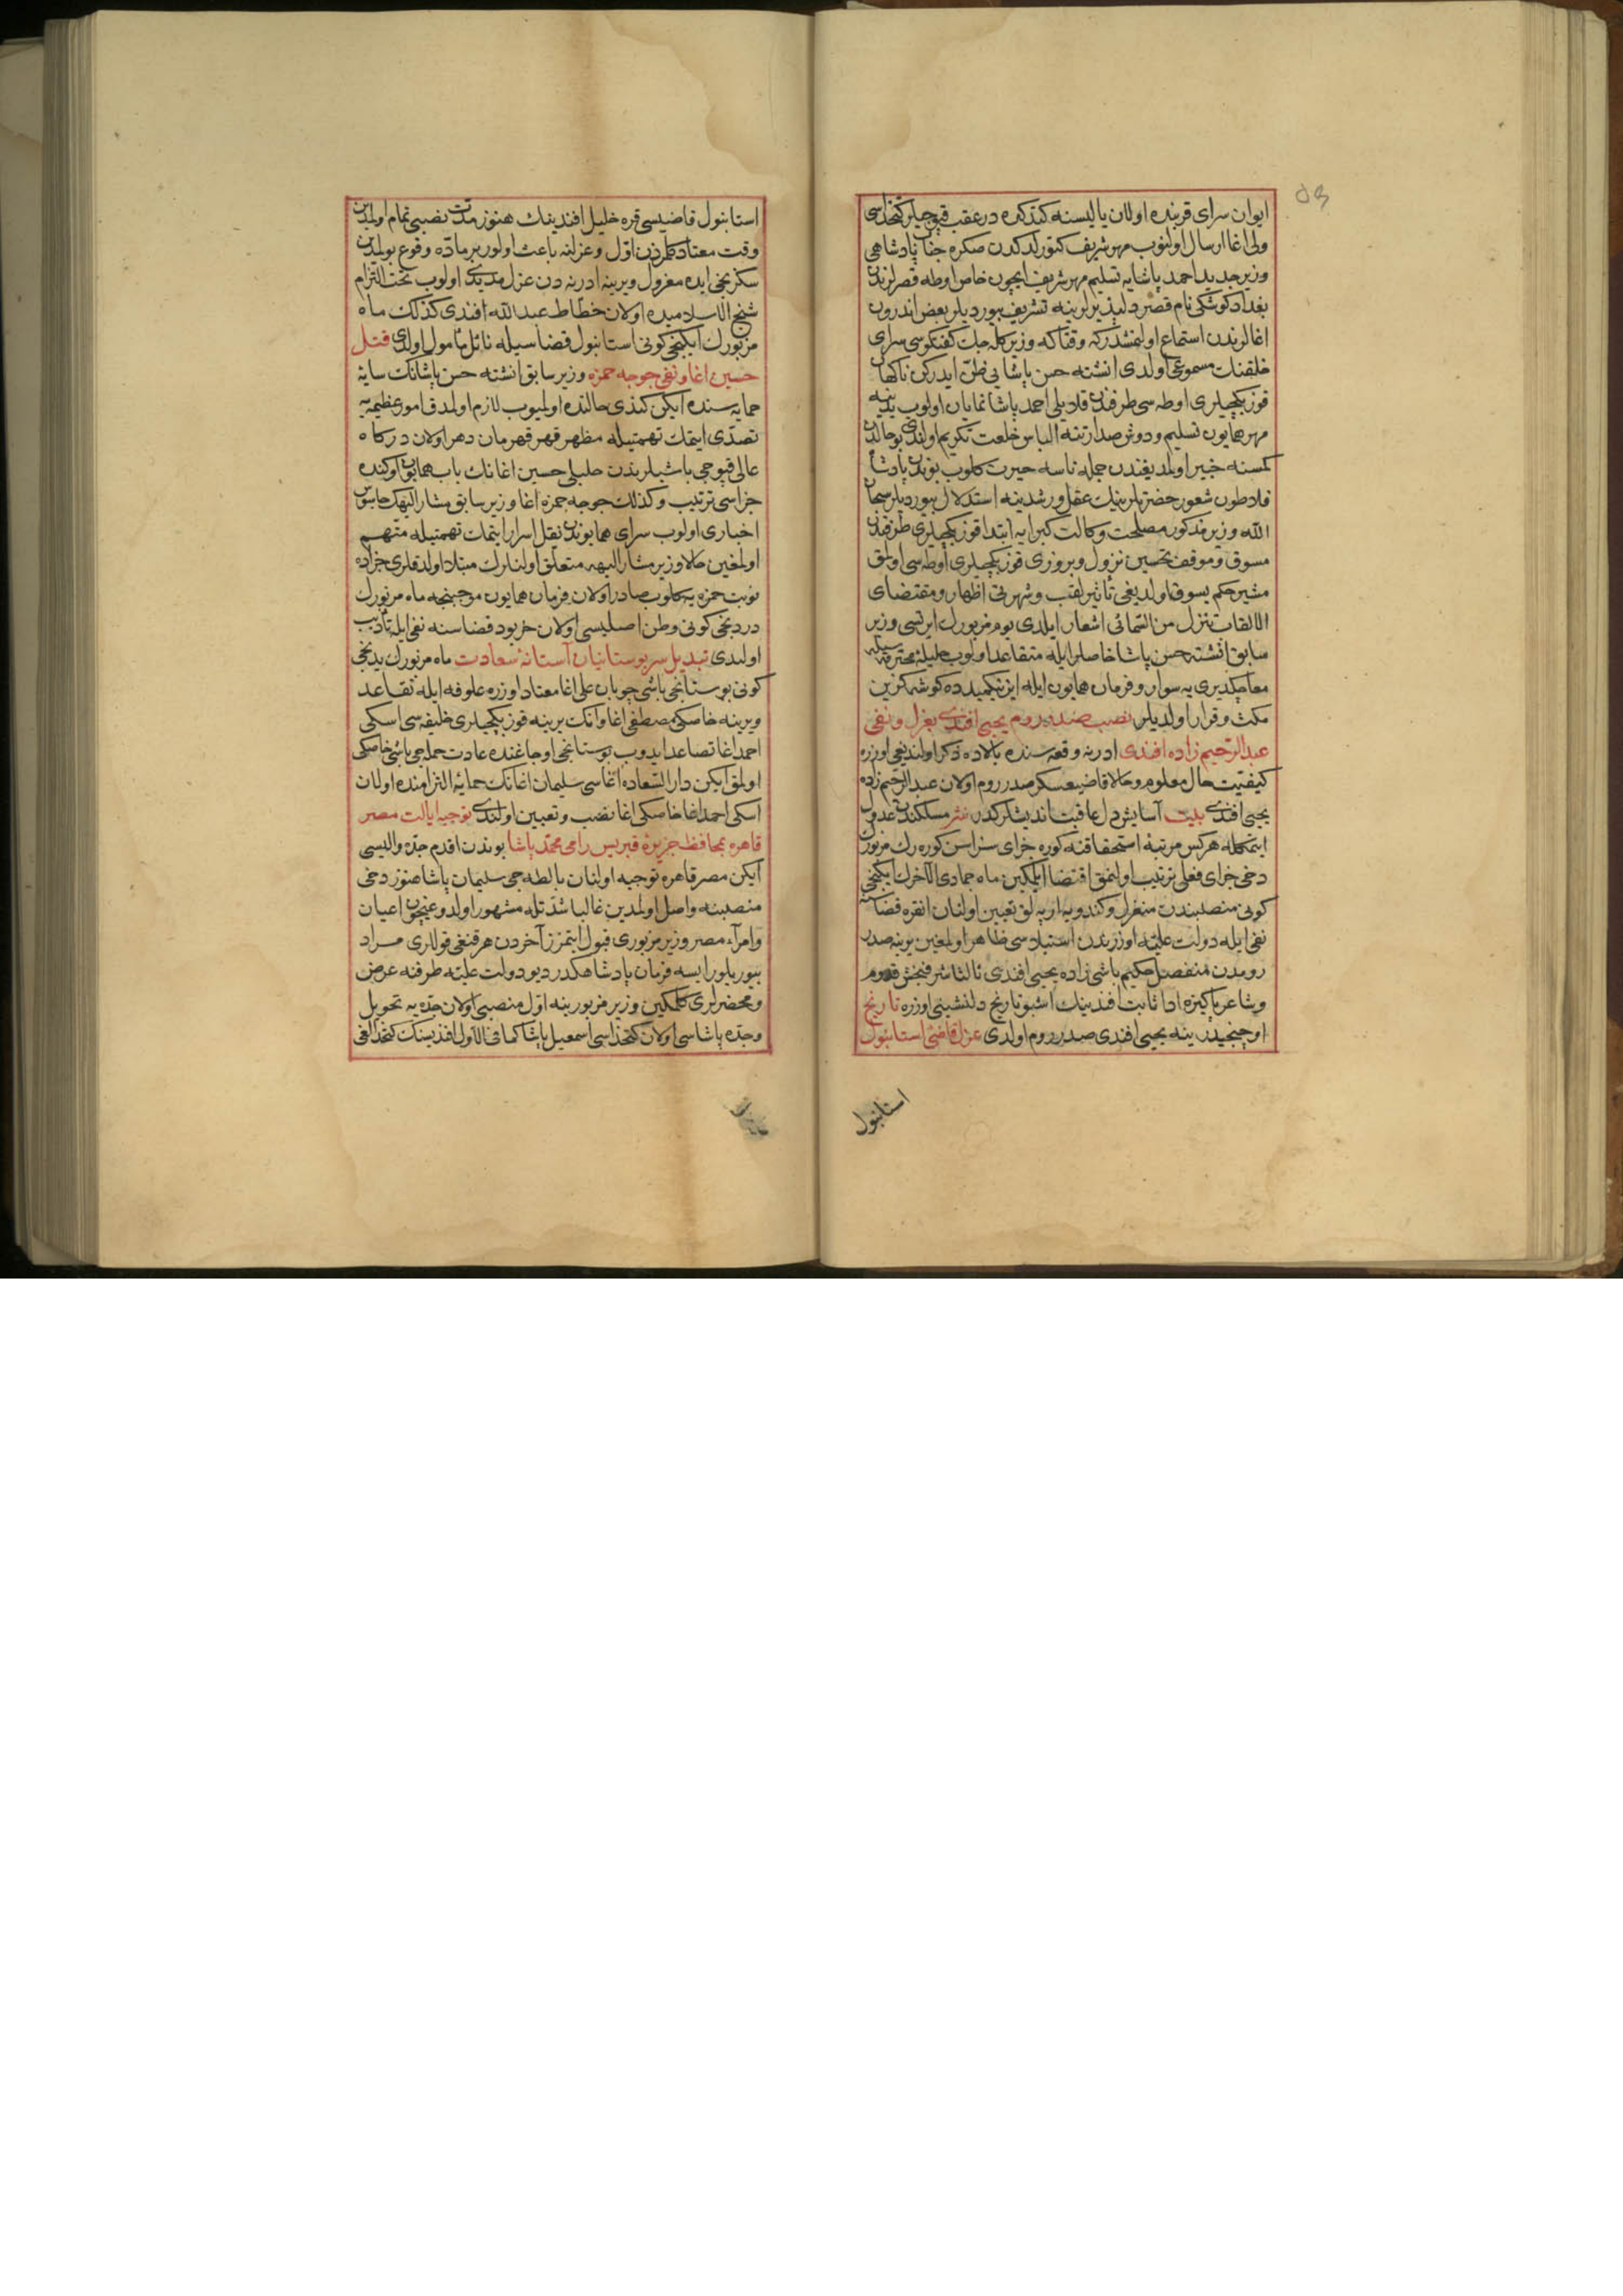 ايوان سراى قربنده اولان ياليسنه كتدكده در عقب قپوجيلر كتخداسى
ولى اغا ارسال اولنوب مهر شريف كتورلدكدن صكره جناب پادشاهى
وزير جديد احمد پاشايه تسليم مهر شريف ايچون خاص اوطه قصرلرندن
بغداد كوشكى نام قصر دلپذيرلرينه تشريف بيورديلر بعض اندرون
اغالرندن استماع اولنمشدركه وقتاكه وزير كله جك كفتكوسى سراى
خلقنك مسموعى اولدى انشته حسن پاشايى ظن ايدركن ناكهان
قوز بكجيلرى اوطه سى طرفندن قلايلى احمد پاشا نمايان اولوب يدينه
مهر همايون تسليم ودوش صدارتنه الباس خلعت تكريم اولندى بو حالدن
كمسنه خبير اولمديغندن جمله ناسه حيرت كلوب بوندن پادشاه
فلاطون شعور حضرتلرينك عقل ورشدينه استدلال بيورديلر سبحان
الله وزير مذكور مصلحت وكالت كبرايه ابتدا قوز بكجيلرى طرفندن
مسوق وموقف تحسين نزول وبروزى قوز بكجيلرى اوطه سى اولمق
مشير حكم يسوق اولديغى تاثير لقب وشهرتى اظهار ومقتضاى
الالقاب تنزل من السمائى اشعار ايلدى يوم مزبورك ايرتسى وزير
سابق انشته حسن پاشا خاصلر ايله متقاعد اولوب حليلۀ محترمه سيله
معا چكديرى يه سوار وفرمان همايون ايله ازنكميده ده كوشه كزين
مكث وقرار اولديلر نصب صدر روم يحيى افندى بعزل ونفى
عبد الرحيم زاده افندى ادرنه وقعه سنده بالاده ذكر اولنديغى اوزره
كيفيت حال معلوم وحالا قاضيعسكر صدر روم اولان عبد الرحيم زاده
يحيى افندى بيت آسايش دل عاقبت انديشلركدر نثر مسلكندن عدول
ايتمكله هركس مرتبۀ استحقاقنه كوره جزاى سزاسن كوره رك مزبورك
دخى جزاى فعلى ترتيب اولنمق اقتضا ايلمكين ماه جمادى الآخرك ايكنجى
كونى منصبندن منعزل وكندويه ارپه لق تعيين اولنان انقره قضاسنه
نفى ايله دولت عليه اوزرندن استيلاسى ظاهر اولمغين يرينه صدر
رومدن منفصل حكيم باشى زاده يحيى افندى ثالثا شرفبخش قدوم
وشاعر پاكيزه ادا ثابت افندينك اشبو تاريخ دلنشينى اوزره تاريخ
اوچنجيدر ينه يحيى افندى صدر روم اولدى عزل قاضئ استانبول
استانبول
استانبول قاضيسى قره خليل افندينك هنوز مدت نصبى تمام اولمدين
وقت معتاد كلمزدن اول وعزلنه باعث اولور بر ماده وقوع بولمدين
سكزنجى ايده معزول ويرينه ادرنه دن عزل مديدى اولوب تحت التزام
شيخ الاسلاميده اولان خطاط عبد الله افندى كذلك ماه
مزبورك ايكنجى كونى استانبول قضاسيله نائل مأمول اولدى قتل
حسين اغا ونفى جوجه حمزه وزير سابق انشته حسن پاشانك سايۀ
حمايه سنده ايكن كندى حالنده اولميوب لازم اولمدق امور عظيمه يه
تصدى ايتمك تهمتيله مظهر قهر قهرمان دهر اولان دركاه
عالى قپوجى باشيلرندن حليلى حسين اغانك باب همايون اوكنده
جزاسى ترتيب وكذلك جوجه حمزه اغا وزير سابق مشار اليهك جاسوس
اخبارى اولوب سراى همايوندن نقل اسرار ايتمك تهمتيله متهم
اولمغين حالا وزير مشار اليهه متعلق اولنلرك مبتلا اولدقلرى جزاده
نوبت حمزه يه كلوب صادر اولان فرمان همايون موجبنجه ماه مزبورك
دردنجى كونى وطن اصليسى اولان خربود قضاسنه نفى ايله تأديب
اولندى تبديل سر بوستانيان آستانۀ سعادت ماه مزبورك يدنجى
كونى بوستانجى باشى چوبان على اغا معتاد اوزره علوفه ايله تقاعد
ويرينه خاصكى مصطفى اغا وانك يرينه قوز بكجيلرى خليفه سى اسكى
احمد اغا تصاعد ايدوب بوستانجى اوجاغنده عادت حمله جى باشى خاصكى
اولمق ايكن دار السعاده اغاسى سليمان اغانك حمايۀ التزامنده اولان
اسكى احمد اغا خاصكى اغا نصب وتعيين اولندى توجيه ايالت مصر
قاهره بمحافظ جزيرۀ قبريس رامى محمد پاشا بوندن اقدم جده واليسى
ايكن مصر قاهره توجيه اولنان بالطه جى سليمان پاشا هنوز دخى
منصبنه واصل اولمدين غالبا شدتله مشهور اولدوغيچون اعيان
وامرآء مصر وزير مزبورى قبول ايتمزز آخردن هر قنغى قوللرى مراد
بيوريلورايسه فرمان پادشاهكدر ديو دولت عليه طرفنه عرض
ومحضرلرى كلمكين وزير مزبور ينه اول منصبى اولان جده يه تحويل
وجده پاشاسى اولان كتخداسى اسمعيل پاشا كما فى الاول افنديسنك كتخدالغى